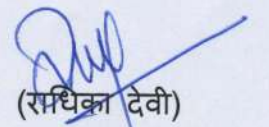 (राधिका देवी)